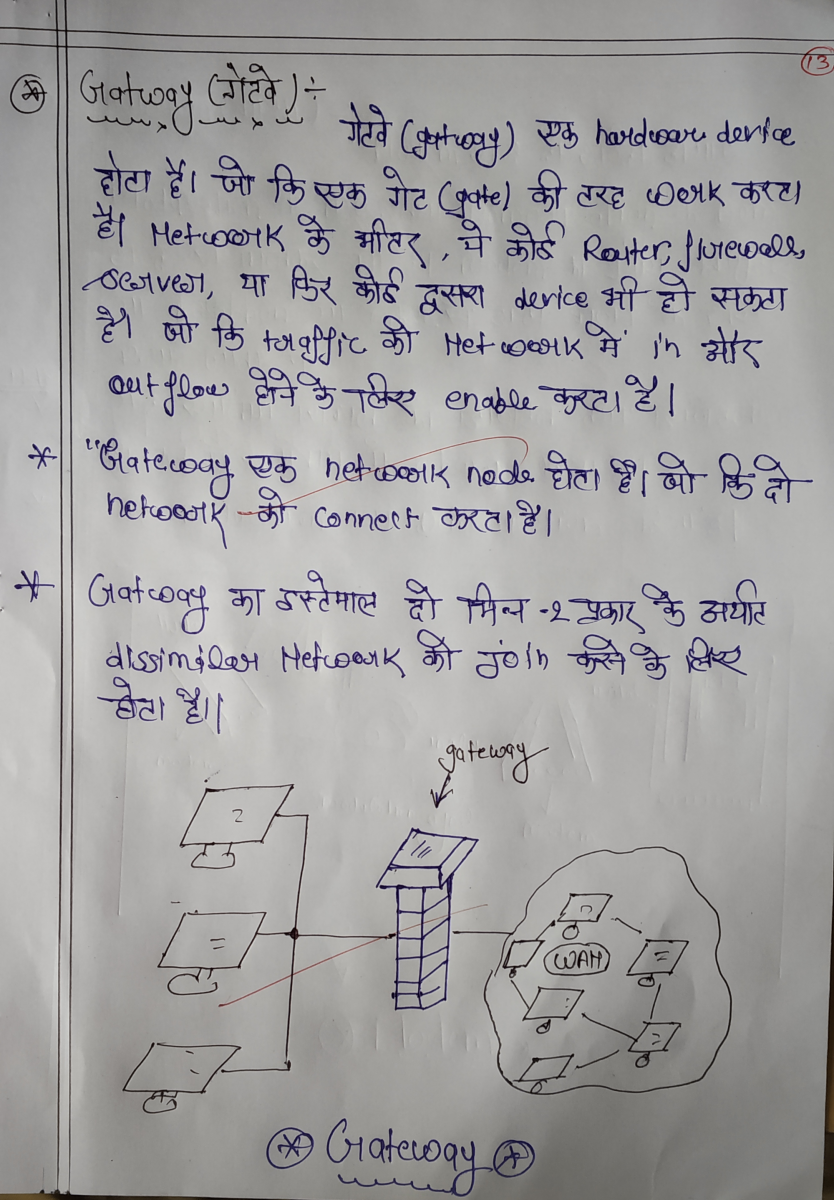 13
Gatway (गेटवे) ÷
गेटवे (gatway) एक hardware device
होता है। जो कि एक गेट (gate) की तरह work करता
है। Network के भीतर, ये कोई Router, firewalls,
server, या फिर कोई दूसरा device भी हो सकता
है। जो कि traffic को Network में in और
out flow होने के लिए enable करता है।
* "Gateway एक network node होता है। जो कि दो
network को connect करता है।
* Gatway का इस्तेमाल दो भिन्न-२ प्रकार के अर्थात
dissimilar Network को join करने के लिए
होता है।।
gateway
WAN
Gateway